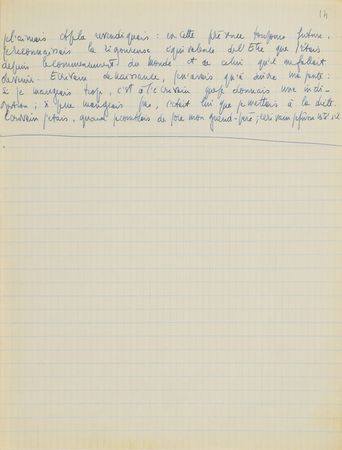 14
j'aimais et je la revendiquais : en cette présence toujours future,
je reconnaissais la rigoureuse équivalence de l'Etre que j'étais
depuis le commencement du Monde et de celui qu'il me fallait
devenir. Ecrivain de naissance, je n'avais qu'à suivre ma pente :
si je mangeais trop, c'est à l'écrivain que je donnais une indi-
gestion ; si je ne mangeais pas, c'était lui que je mettais à la diète.
Ecrivain j'étais, quand je comblais de joie mon grand-père ; écrivain